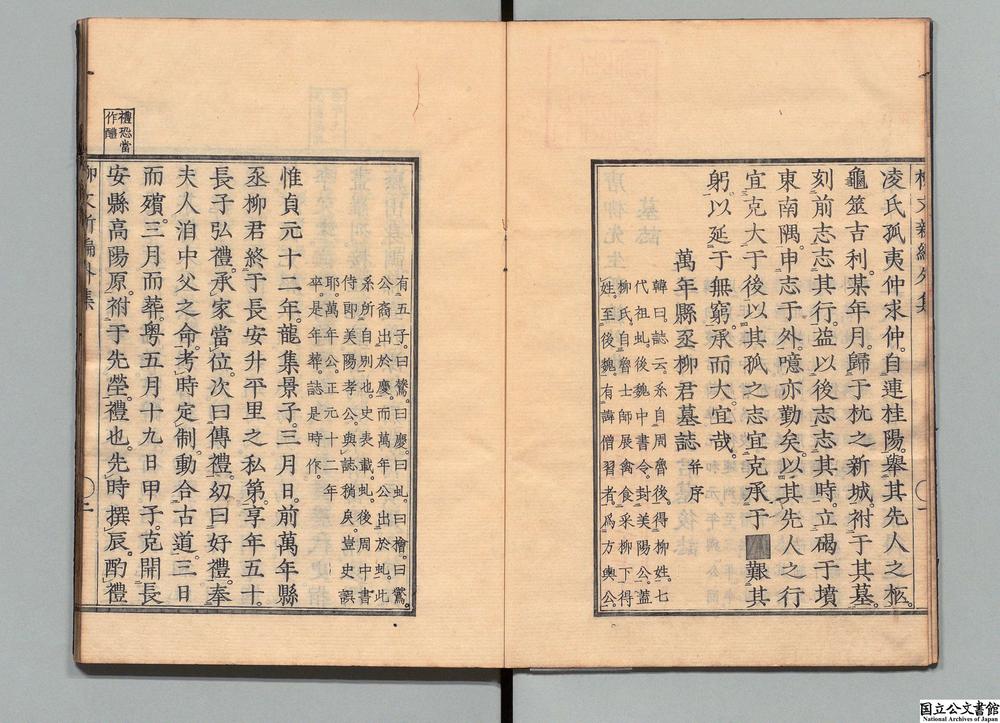 凌氏孤夷仲求仲自連桂陽舉其先人之柩
龜筮吉利某年月歸于杭之新城祔于其墓
刻前志志其行益以後志志其時立碣于墳
東南隅申志于外噫亦勤矣以其先人之行
宜克大于後以其孤之志宜克承于艱其
躬以延于無窮承而大宜哉
萬年縣丞柳君墓誌 并序
韓曰誌云系自周魯後得柳姓七
代祖虬後魏中書令封美陽公蓋
柳氏自魯士師展禽食采柳下得
姓至後魏有諱僧習者爲方輿公
有五子曰鷟曰慶曰虬曰檜曰鷟
公裔出於慶而萬年公出於虬此
系所自別也史表載虬後周中書
侍卽美陽孝公與誌稍戾豈史誤
耶萬年公正元十二年
卒是年葬誌是時作
惟貞元十二年龍集景子三月日前萬年縣
丞柳君終于長安升平里之私第享年五十
長子弘禮承家當位次曰傳禮幼曰好禮奉
夫人洎中父之命考時定制動合古道三日
而殯三月而葬粤五月十九日甲子克開長
安縣高陽原祔于先塋禮也先時撰辰酌禮
禮恐當
作醴
柳文新編外集
二
国立公文書館
National Archives of Japan